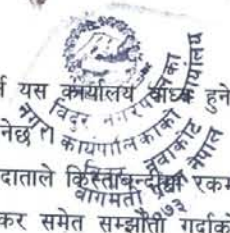 यस कार्यालय बाध्य हुने
नेछ ।
दाताले किस्ताबन्दीमा रकम
कर समेत सम्झौता गर्दाको
विदुर नगरपालिका
नगर कार्यपालिकाको कार्यालय
नुवाकोट
बागमती प्रदेश नेपाल
२०७३